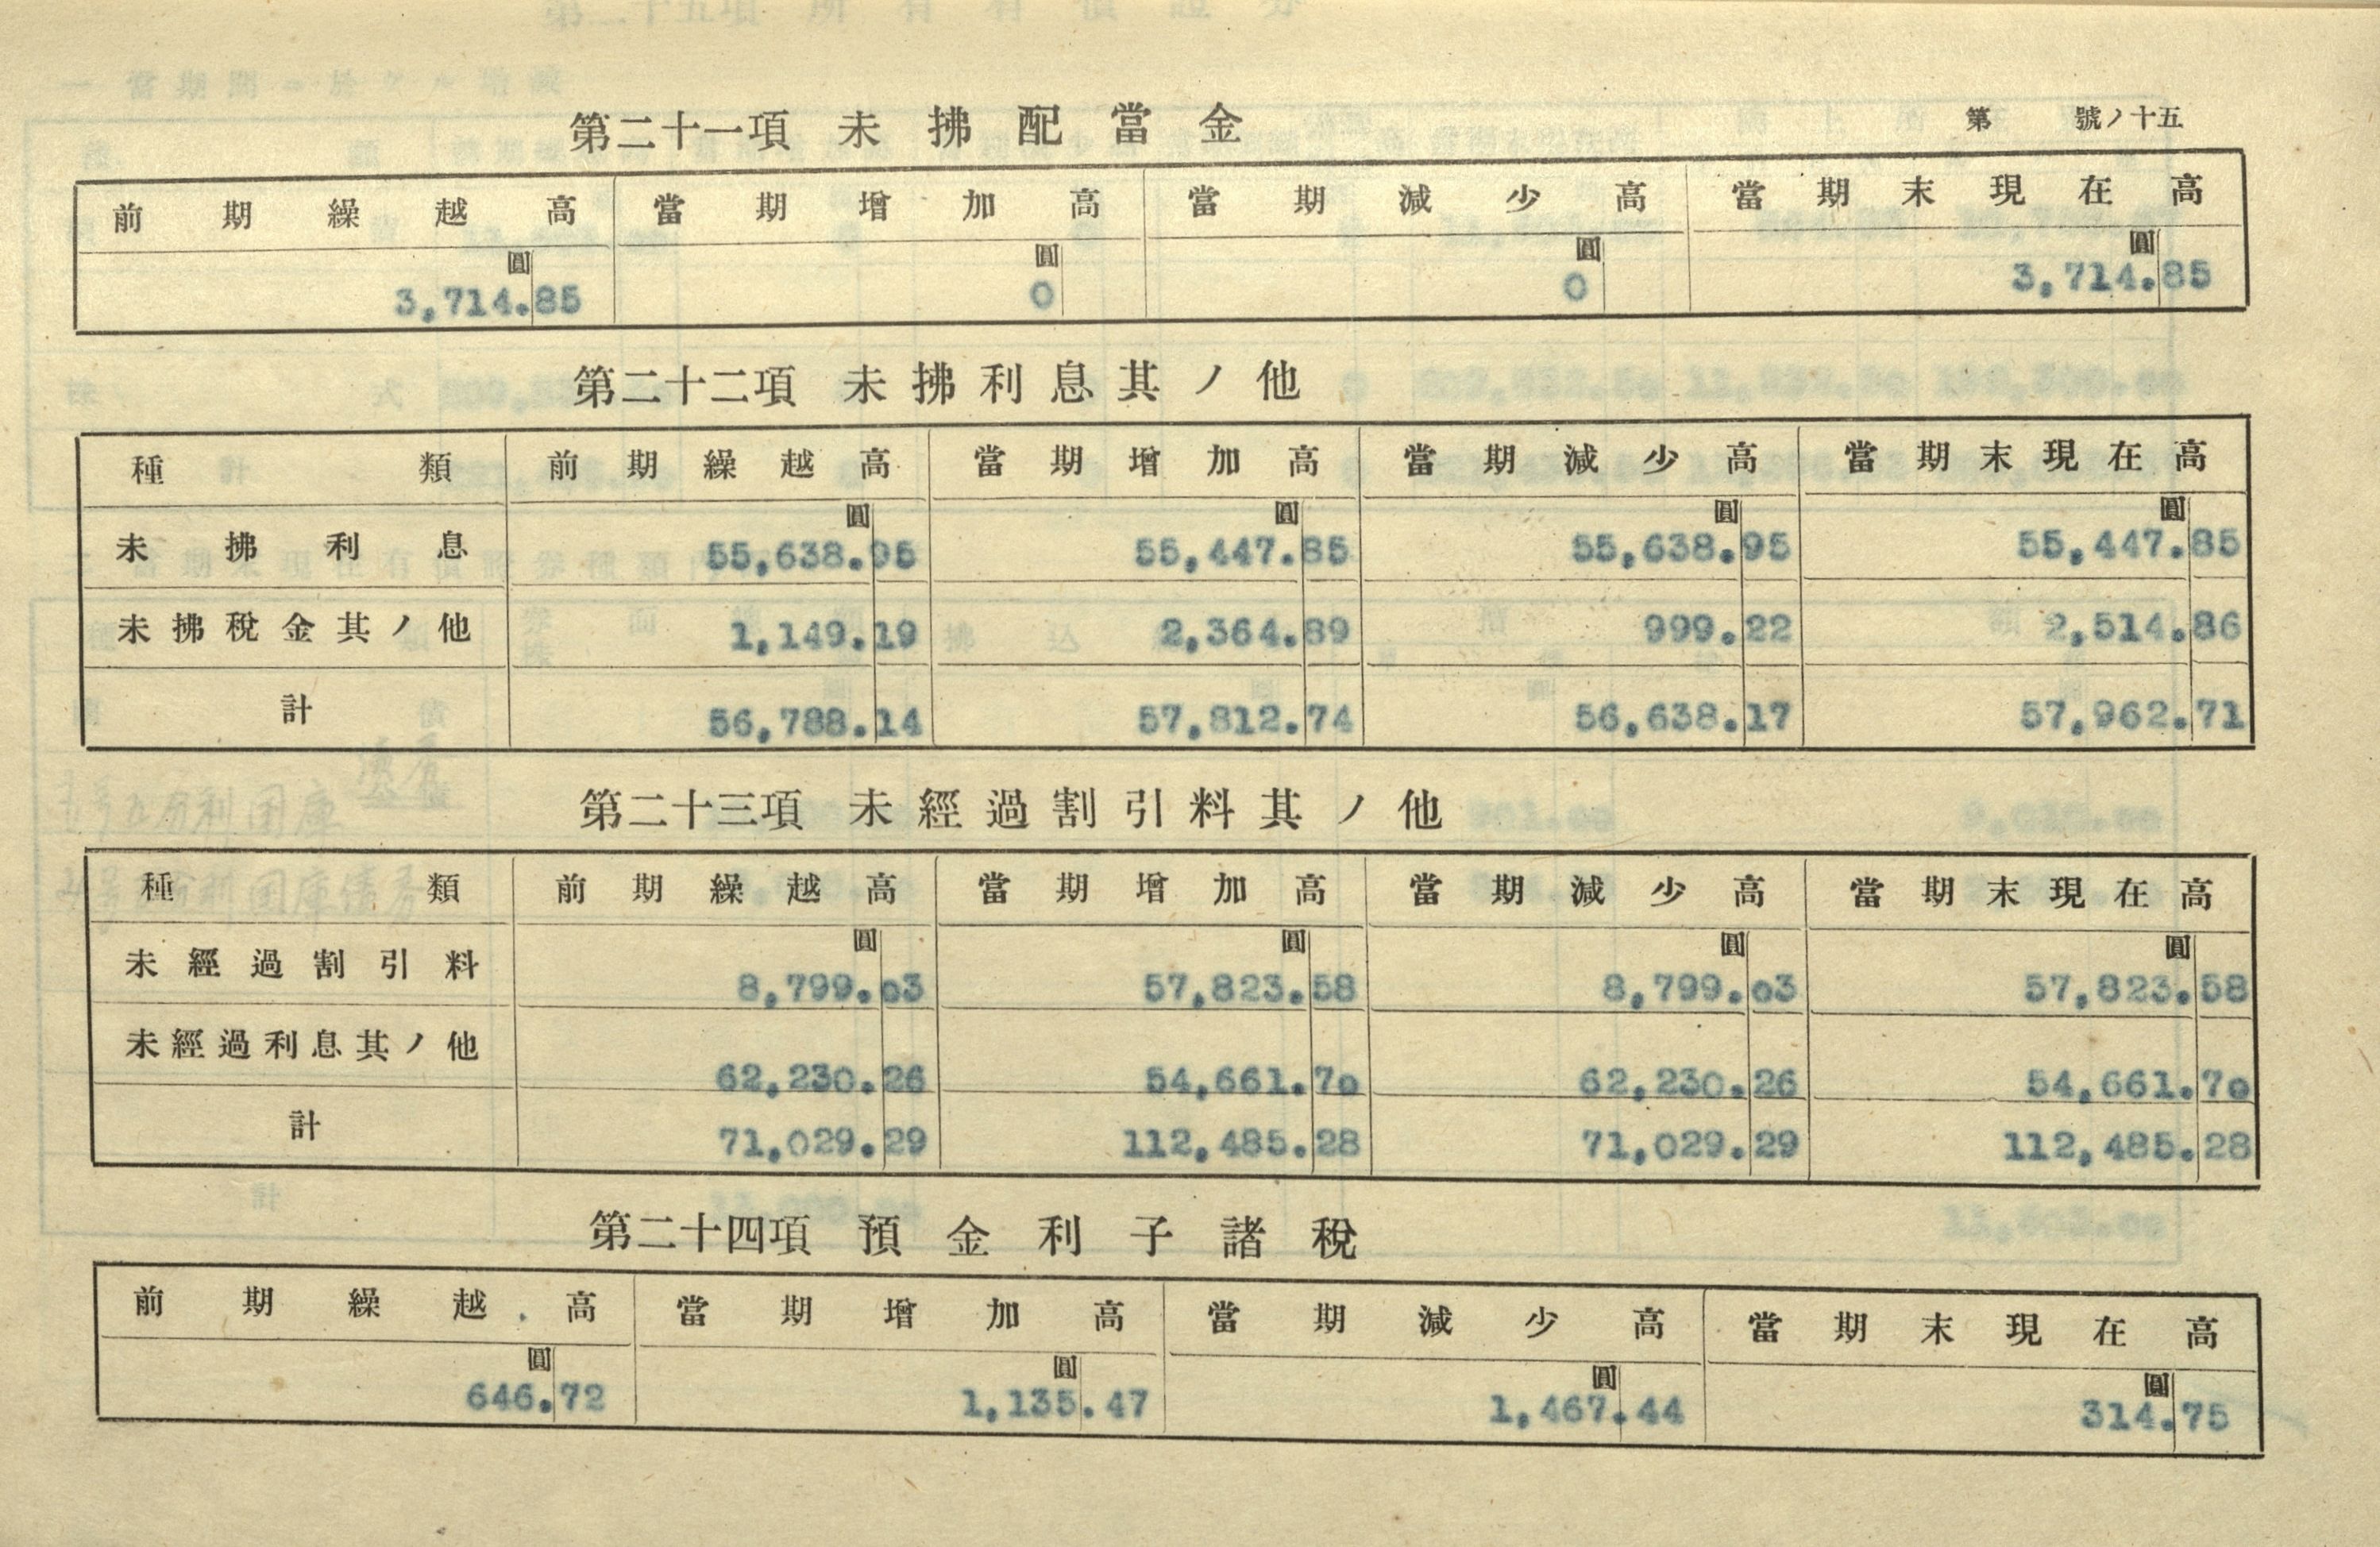 第　號ノ十五
第二十一項　未拂配當金
前期繰越高　當期增加高　當期減少高　當期末現在高
圓　圓　圓　圓
3,714.85　0　0　3,714.85
第二十二項　未拂利息其ノ他
種類　前期繰越高　當期增加高　當期減少高　當期末現在高
圓　圓　圓　圓
未拂利息　55,638.95　55,447.85　55,638.95　55,447.85
未拂稅金其ノ他　1,149.19　2,364.89　999.22　2,514.86
計　56,788.14　57,812.74　56,638.17　57,962.71
第二十三項　未經過割引料其ノ他
種類　前期繰越高　當期增加高　當期減少高　當期末現在高
圓　圓　圓　圓
未經過割引料　8,799.03　57,823.58　8,799.03　57,823.58
未經過利息其ノ他　62,230.26　54,661.70　62,230.26　54,661.70
計　71,029.29　112,485.28　71,029.29　112,485.28
第二十四項　預金利子諸稅
前期繰越高　當期增加高　當期減少高　當期末現在高
圓　圓　圓　圓
646.72　1,135.47　1,467.44　314.75